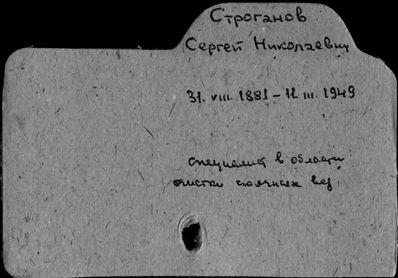 Строганов
Сергей Николаевич
31. VIII. 1881 – 11. III. 1949
специалист в области
очистки сточных вод